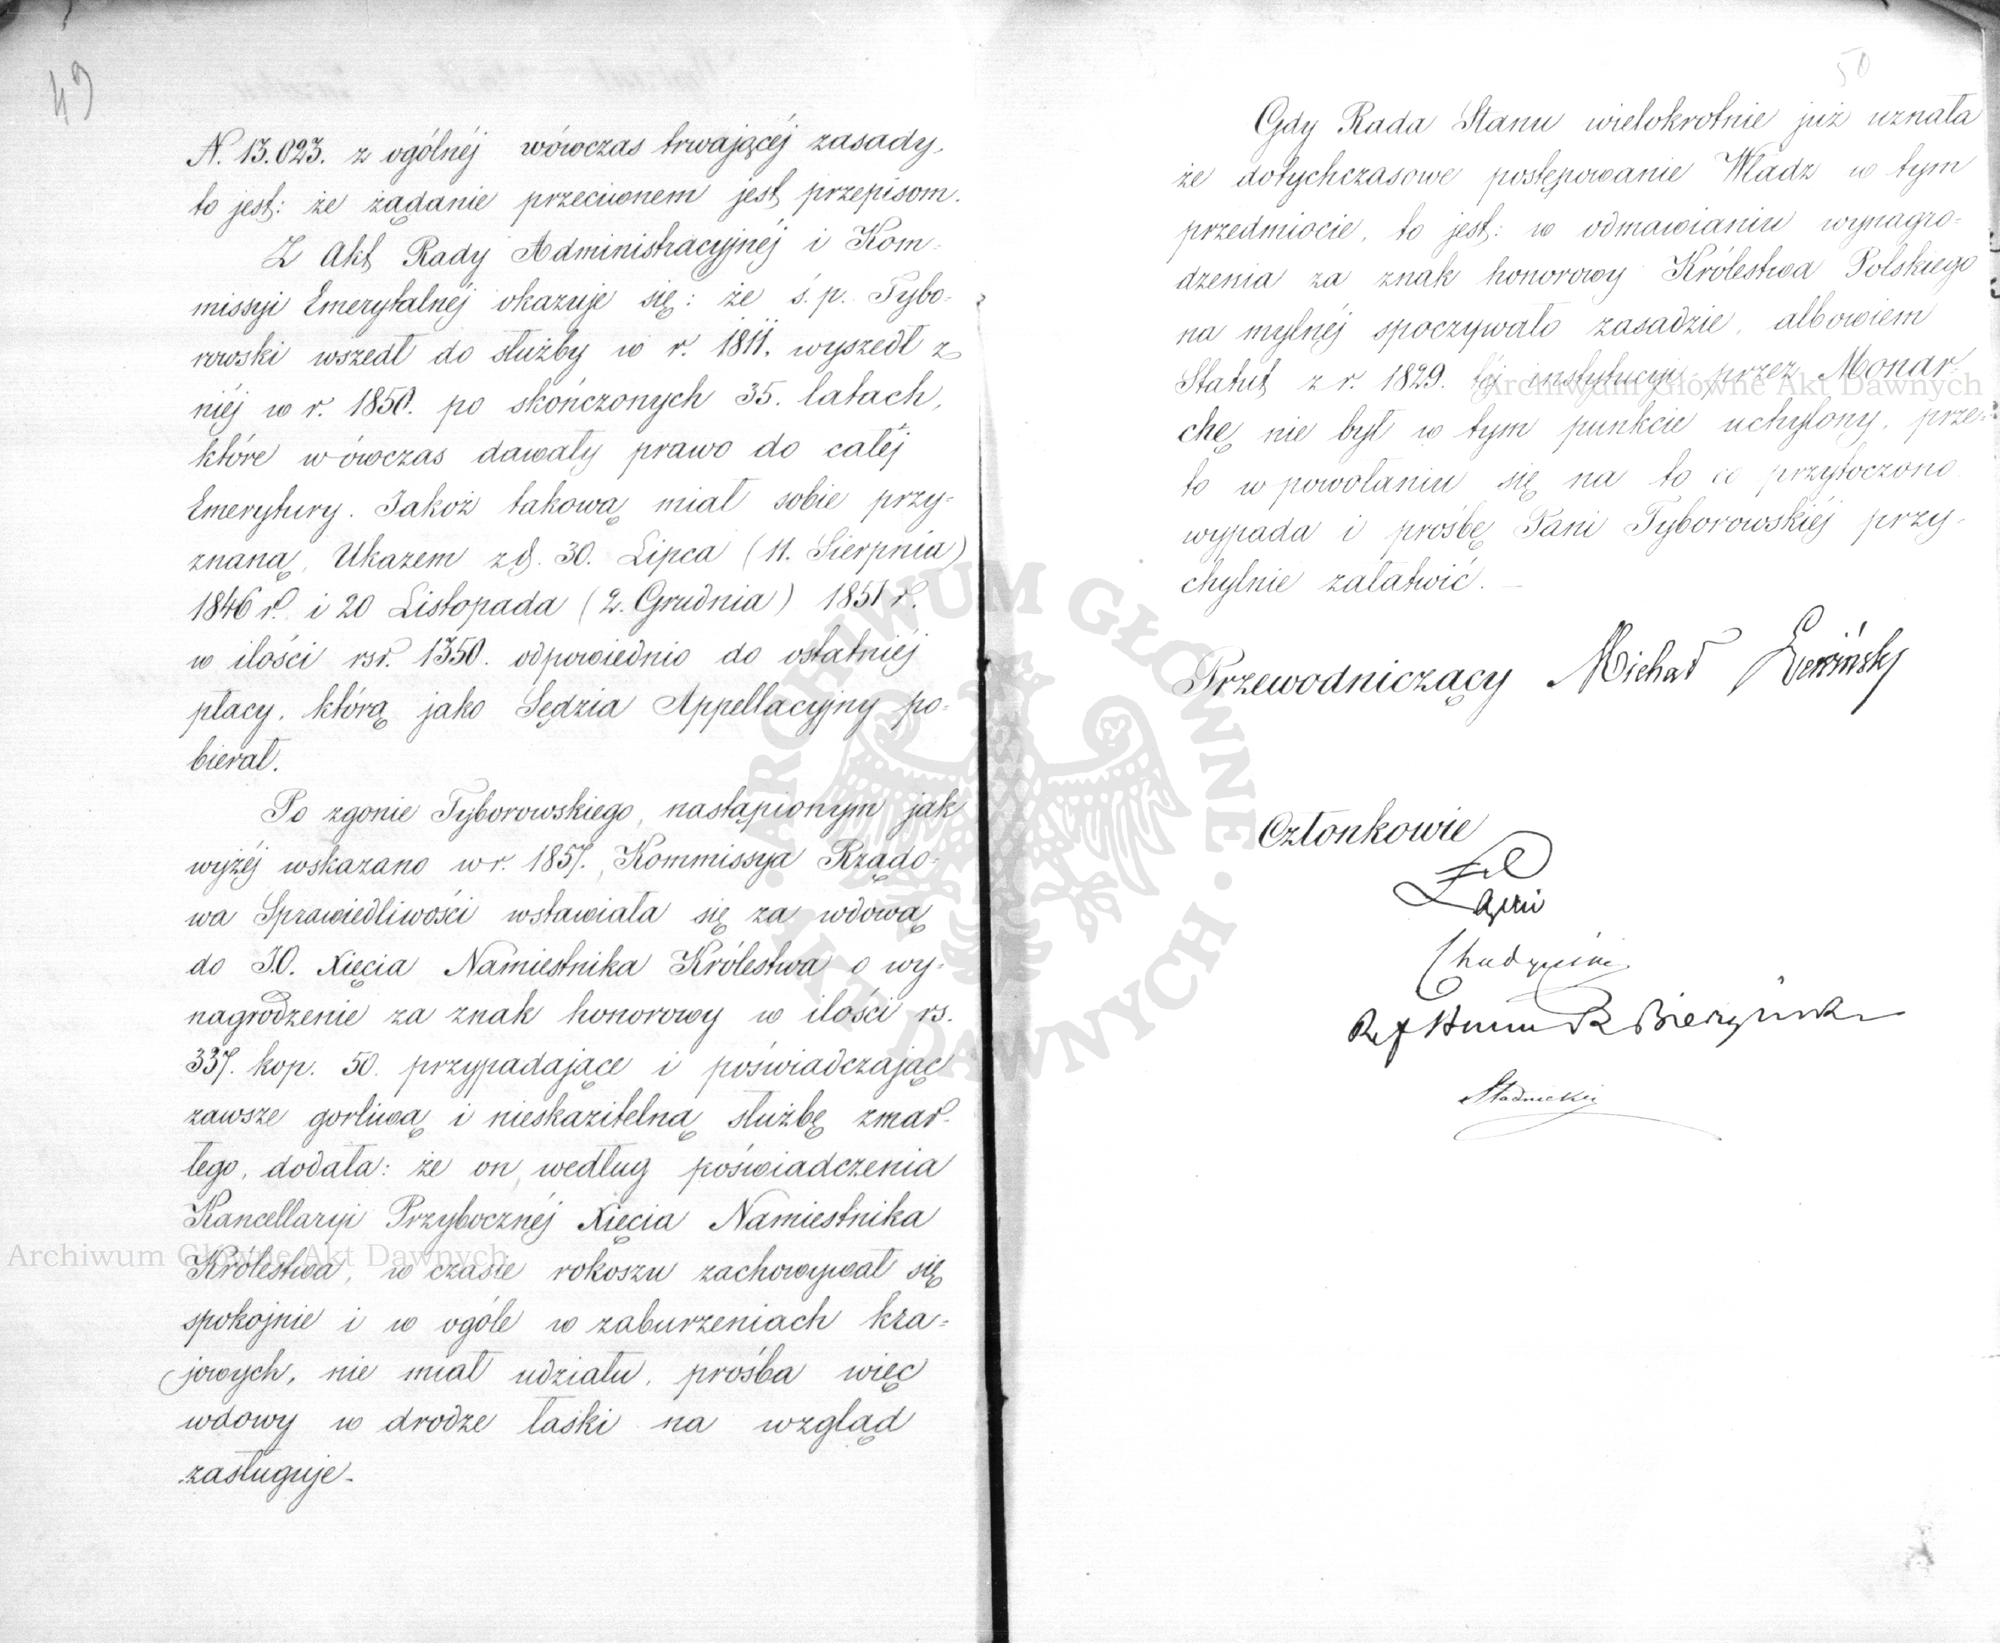 49
N. 13.023. z ogólnéj wówczas trwającéj zasady,
to jest: że żądanie przeciwnem jest przepisom.
Z Akt Rady Administracyjnéj i Kom-
missyi Emerytalnéj okazuje się: że ś. p. Tybo-
rowski wszedł do służby w r. 1811. wyszedł z
niéj w r. 1850. po skończonych 35. latach,
które wówczas dawały prawo do całéj
Emerytury. Jakoż takową miał sobie przy-
znaną, Ukazem z d. 30. Lipca (11. Sierpnia)
1846 r. i 20 Listopada (2. Grudnia) 1851 r.
w ilości rsr. 1350. odpowiednio do ostatniéj
płacy, którą jako Sędzia Appellacyjny po-
bierał.
Po zgonie Tyborowskiego, nastąpionym jak
wyżéj wskazano w r. 1857., Kommissya Rządo-
wa Sprawiedliwości wstawiała się za wdową
do J.O. Xięcia Namiestnika Królestwa o wy-
nagrodzenie za znak honorowy w ilości rs.
337. kop. 50. przypadające i poświadczając
zawsze gorliwą i nieskazitelną służbę zmar-
łego, dodała: że on, według poświadczenia
Kancellaryi Przybocznéj Xięcia Namiestnika
Królestwa, w czasie rokoszu zachowywał się
spokojnie i w ogóle w zaburzeniach kra-
jowych, nie miał udziału, prośba więc
wdowy w drodze łaski na wzgląd
zasługuje.
50
Gdy Rada Stanu wielokrotnie już uznała
że dotychczasowe postępowanie Władz w tym
przedmiocie, to jest: w odmawianiu wynagro-
dzenia za znak honorowy Królestwa Polskiego
na mylnéj spoczywało zasadzie, albowiem
Statut z r. 1829. téj instytucyi przez Monar-
chę nie był w tym punkcie uchylony, prze-
to w powołaniu się na to co przytoczono
wypada i prośbę Pani Tyborowskiéj przy-
chylnie załatwić. —
Przewodniczący Michał
Członkowie
Stadnicki
Archiwum Główne Akt Dawnych
Archiwum Główne Akt Dawnych
ARCHIWUM GŁÓWNE AKT DAWNYCH